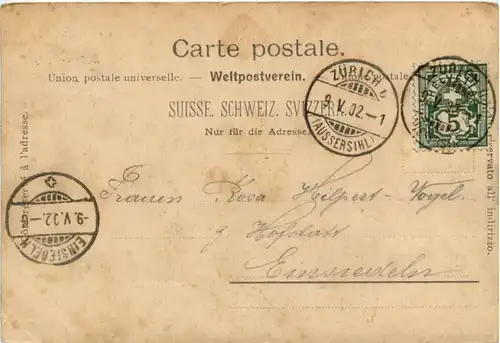 Carte postale.
Union postale universelle. — Weltpostverein. — postale
SUISSE. SCHWEIZ. SVIZZERA.
Nur für die Adresse.
ZÜRICH 1
9.V.02.–1
(AUSSERSIHL)
ZÜRICH
HELVETIA
5
à l'adresse.
riservato all' indirizzo.
-9.V.02.-
EINSIEDELN
Frauen Rosa Hilpert-Vogel.
Hofstatt
Einsiedeln